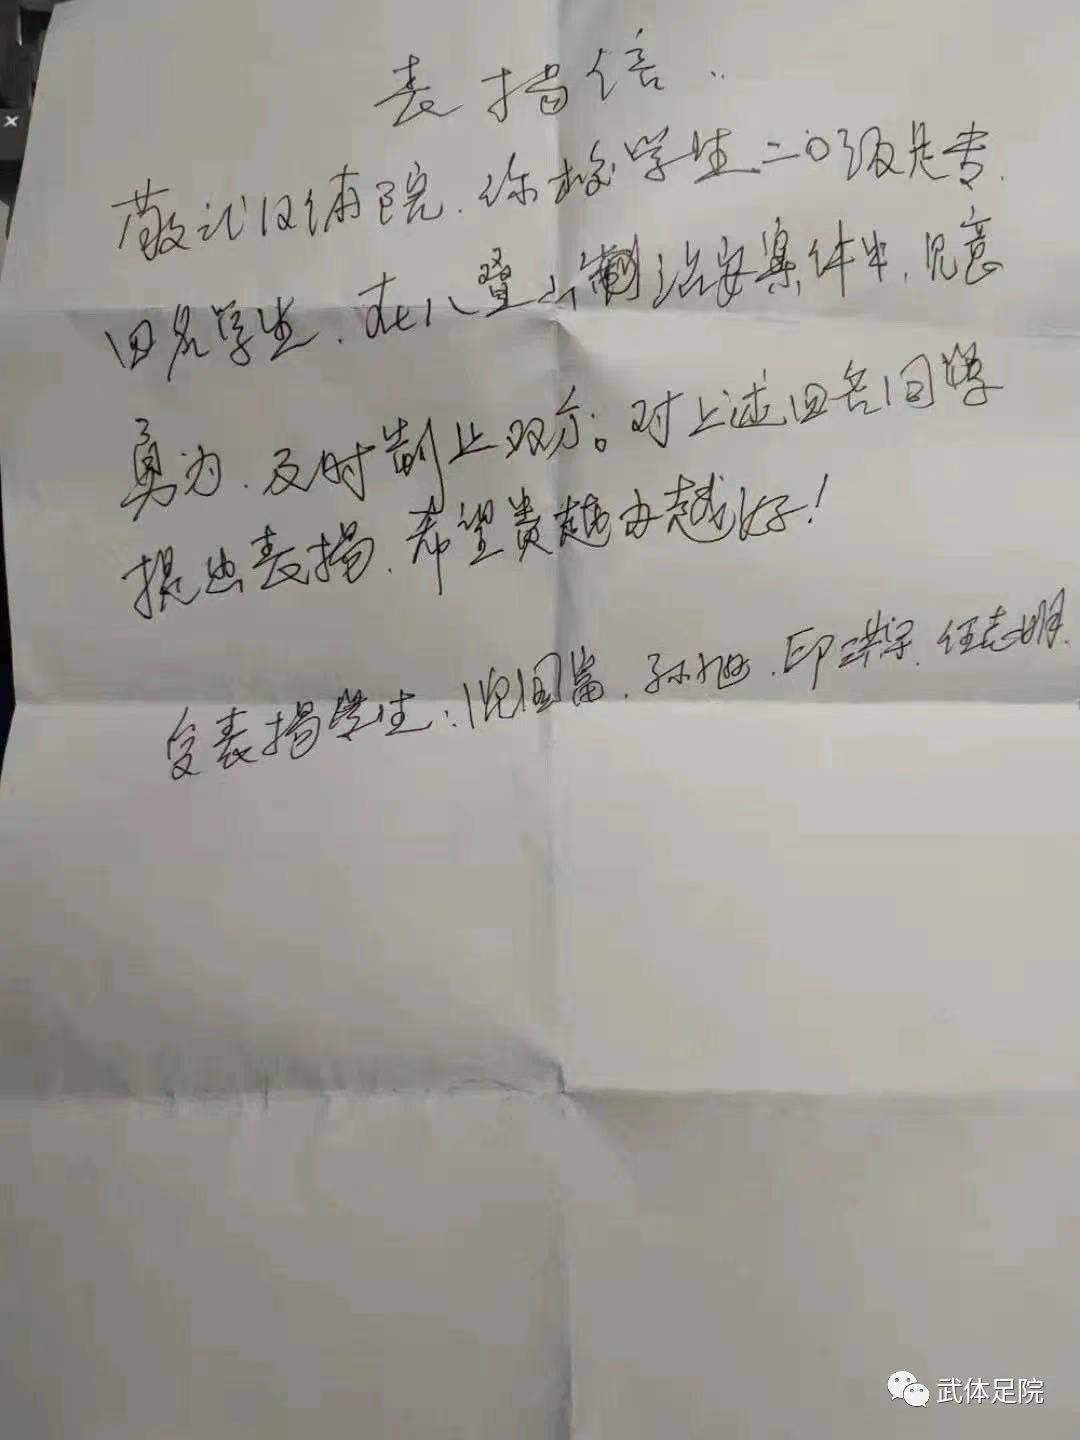 表扬信:
敬武汉体院、你校学生二0级足专、
四名学生、在八叠山制治安案件中、见意
勇为、及时制止双方。对上述四名同学
提出表扬、希望贵越办越好!
受表扬学生:倪国富、孙旭、印洪宇、任志明、
武体足院